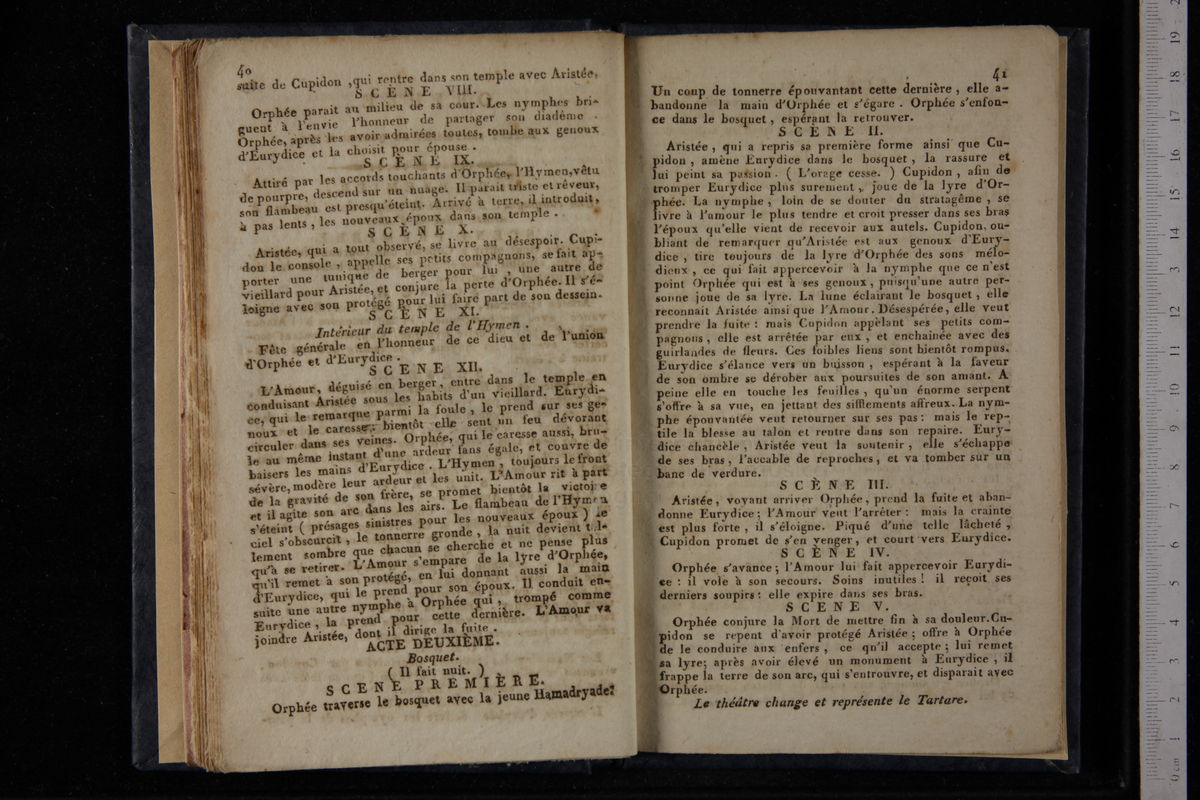 40
suite de Cupidon ,qui rentre dans son temple avec Aristée,
SCÈNE VIII.
Orphée parait au milieu de sa cour. Les nymphes bri-
guent à l'envie l'honneur de partager son diadème .
Orphée, après les avoir admirées toutes, tombe aux genoux
d'Eurydice et la choisit pour épouse .
SCÈNE IX.
Attiré par les accords touchants d'Orphée, l'Hymen,vêtu
de pourpre, descend sur un nuage. Il parait triste et rêveur,
son flambeau est presqu'éteint. Arrivé à terre, il introduit,
à pas lents , les nouveaux époux dans son temple .
SCÈNE X.
Aristée, qui a tout observé, se livre au désespoir. Cupi-
don le console , appelle ses petits compagnons, se fait ap-
porter une tunique de berger pour lui , une autre de
vieillard pour Aristée, et conjure la perte d'Orphée. Il s'é-
loigne avec son protégé pour lui faire part de son dessein.
SCÈNE XI.
Intérieur du temple de l'Hymen .
Fête générale en l'honneur de ce dieu et de l'union
d'Orphée et d'Eurydice .
SCÈNE XII.
L'Amour, déguisé en berger, entre dans le temple en
conduisant Aristée sous les habits d'un vieillard. Eurydi-
ce, qui le remarque parmi la foule , le prend sur ses ge-
noux et le caresse; bientôt elle sent un feu dévorant
circuler dans ses veines. Orphée, qui le caresse aussi, bru-
le au même instant d'une ardeur sans égale, et couvre de
baisers les mains d'Eurydice . L'Hymen , toujours le front
sévère, modère leur ardeur et les unit. L'Amour rit à part
de la gravité de son frère, se promet bientôt la victoire
et il agite son arc dans les airs. Le flambeau de l'Hymen
s'éteint ( présages sinistres pour les nouveaux époux ) le
ciel s'obscurcit , le tonnerre gronde , la nuit devient tel-
lement sombre que chacun se cherche et ne pense plus
qu'à se retirer. L'Amour s'empare de la lyre d'Orphée,
qu'il remet à son protégé, en lui donnant aussi la main
d'Eurydice, qui le prend pour son époux. Il conduit en-
suite une autre nymphe à Orphée qui , trompé comme
Eurydice , la prend pour cette dernière. L'Amour va
joindre Aristée, dont il dirige la fuite .
ACTE DEUXIÈME.
Bosquet.
( Il fait nuit. )
SCENE PREMIÈRE.
Orphée traverse le bosquet avec la jeune Hamadryade.
41
Un coup de tonnerre épouvantant cette dernière , elle a-
bandonne la main d'Orphée et s'égare . Orphée s'enfon-
ce dans le bosquet , espérant la retrouver.
SCÈNE II.
Aristée , qui a repris sa première forme ainsi que Cu-
pidon , amène Eurydice dans le bosquet , la rassure et
lui peint sa passion . ( L'orage cesse. ) Cupidon , afin de
tromper Eurydice plus surement , joue de la lyre d'Or-
phée. La nymphe , loin de se douter du stratagême , se
livre à l'amour le plus tendre et croit presser dans ses bras
l'époux qu'elle vient de recevoir aux autels. Cupidon, ou-
bliant de remarquer qu'Aristée est aux genoux d'Eury-
dice , tire toujours de la lyre d'Orphée des sons mélo-
dieux , ce qui fait appercevoir à la nymphe que ce n'est
point Orphée qui est à ses genoux , puisqu'une autre per-
sonne joue de sa lyre. La lune éclairant le bosquet , elle
reconnait Aristée ainsi que l'Amour. Désespérée, elle veut
prendre la fuite : mais Cupidon appèlant ses petits com-
pagnons , elle est arrêtée par eux , et enchainée avec des
guirlandes de fleurs. Ces foibles liens sont bientôt rompus.
Eurydice s'élance vers un buisson , espérant à la faveur
de son ombre se dérober aux poursuites de son amant. A
peine elle en touche les feuilles , qu'un énorme serpent
s'offre à sa vue, en jettant des sifflements affreux. La nym-
phe épouvantée veut retourner sur ses pas : mais le rep-
tile la blesse au talon et rentre dans son repaire. Eury-
dice chancèle , Aristée veut la soutenir , elle s'échappe
de ses bras , l'accable de reproches , et va tomber sur un
banc de verdure.
SCÈNE III.
Aristée , voyant arriver Orphée , prend la fuite et aban-
donne Eurydice ; l'Amour veut l'arrêter : mais la crainte
est plus forte , il s'éloigne. Piqué d'une telle lâcheté ,
Cupidon promet de s'en venger, et court vers Eurydice.
SCÈNE IV.
Orphée s'avance ; l'Amour lui fait appercevoir Eurydi-
ce : il vole à son secours. Soins inutiles ! il reçoit ses
derniers soupirs : elle expire dans ses bras.
SCENE V.
Orphée conjure la Mort de mettre fin à sa douleur. Cu-
pidon se repent d'avoir protégé Aristée ; offre à Orphée
de le conduire aux enfers , ce qu'il accepte ; lui remet
sa lyre; après avoir élevé un monument à Eurydice , il
frappe la terre de son arc, qui s'entrouvre, et disparait avec
Orphée.
Le théâtre change et représente le Tartare.
0 cm 1 2 3 4 5 6 7 8 9 10 11 12 13 14 15 16 17 18 19